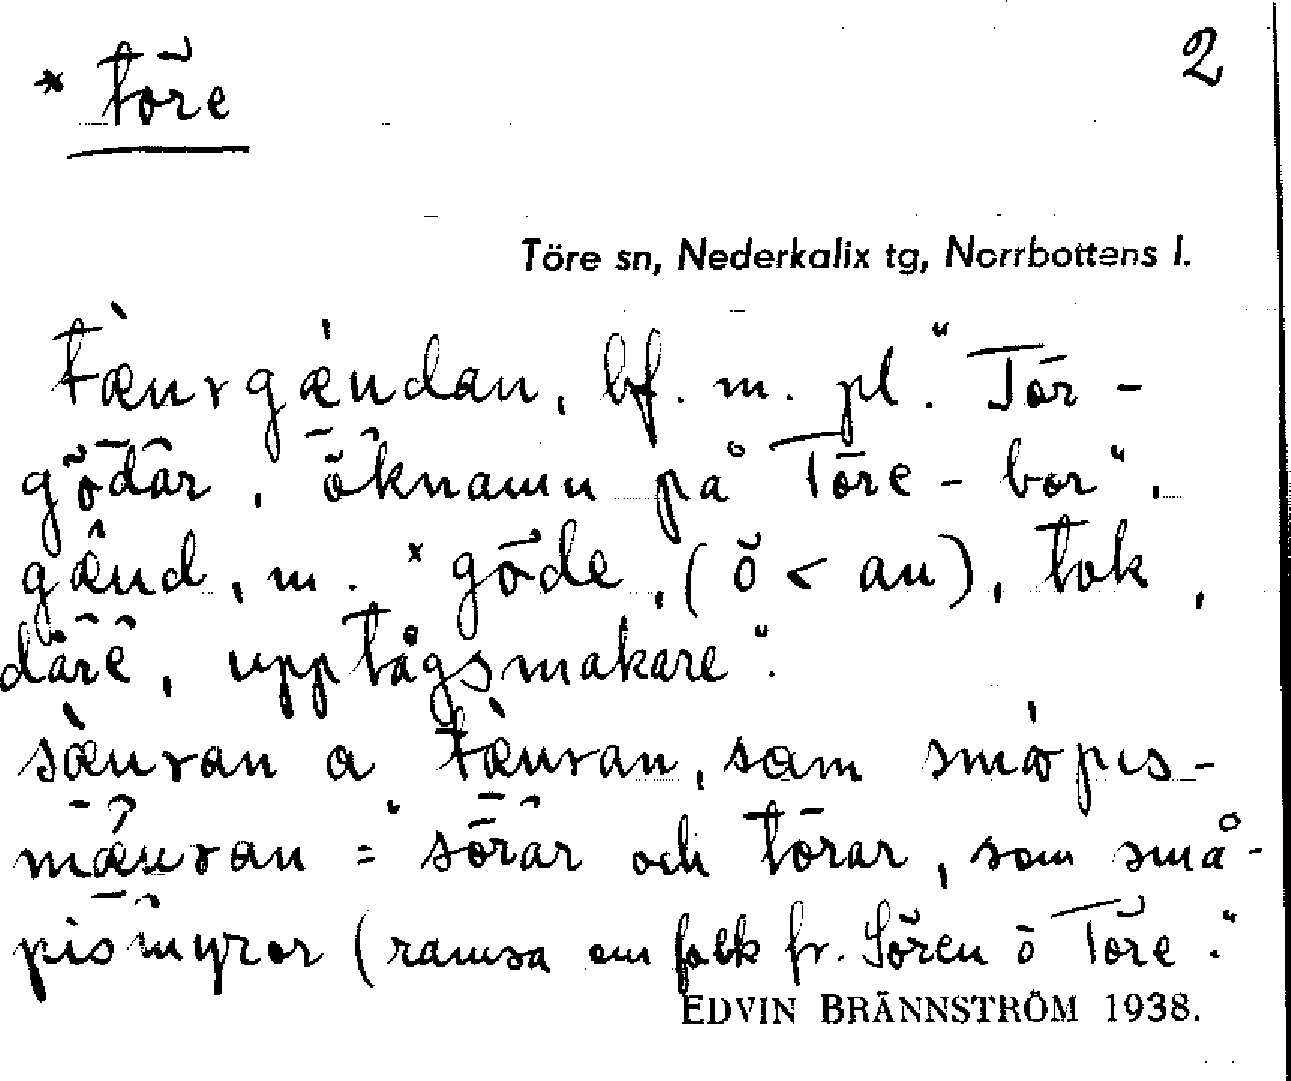 * Töre
2
Töre sn, Nederkalix tg, Norrbottens l.
tæ̀urgǽudan, bf. m. pl. "Tör-
gödar, öknamn på Töre-bor".
gæ̂ud, m. "*göde, (ö < au), tok,
dåre, upptågsmakare".
sæ̀uran a tæ̀uran, sam småpis-
mæ̂uran = "sörar och törar, som små-
pismyror (ramsa om folk fr. Sören o Töre."
EDVIN BRÄNNSTRÖM 1938.